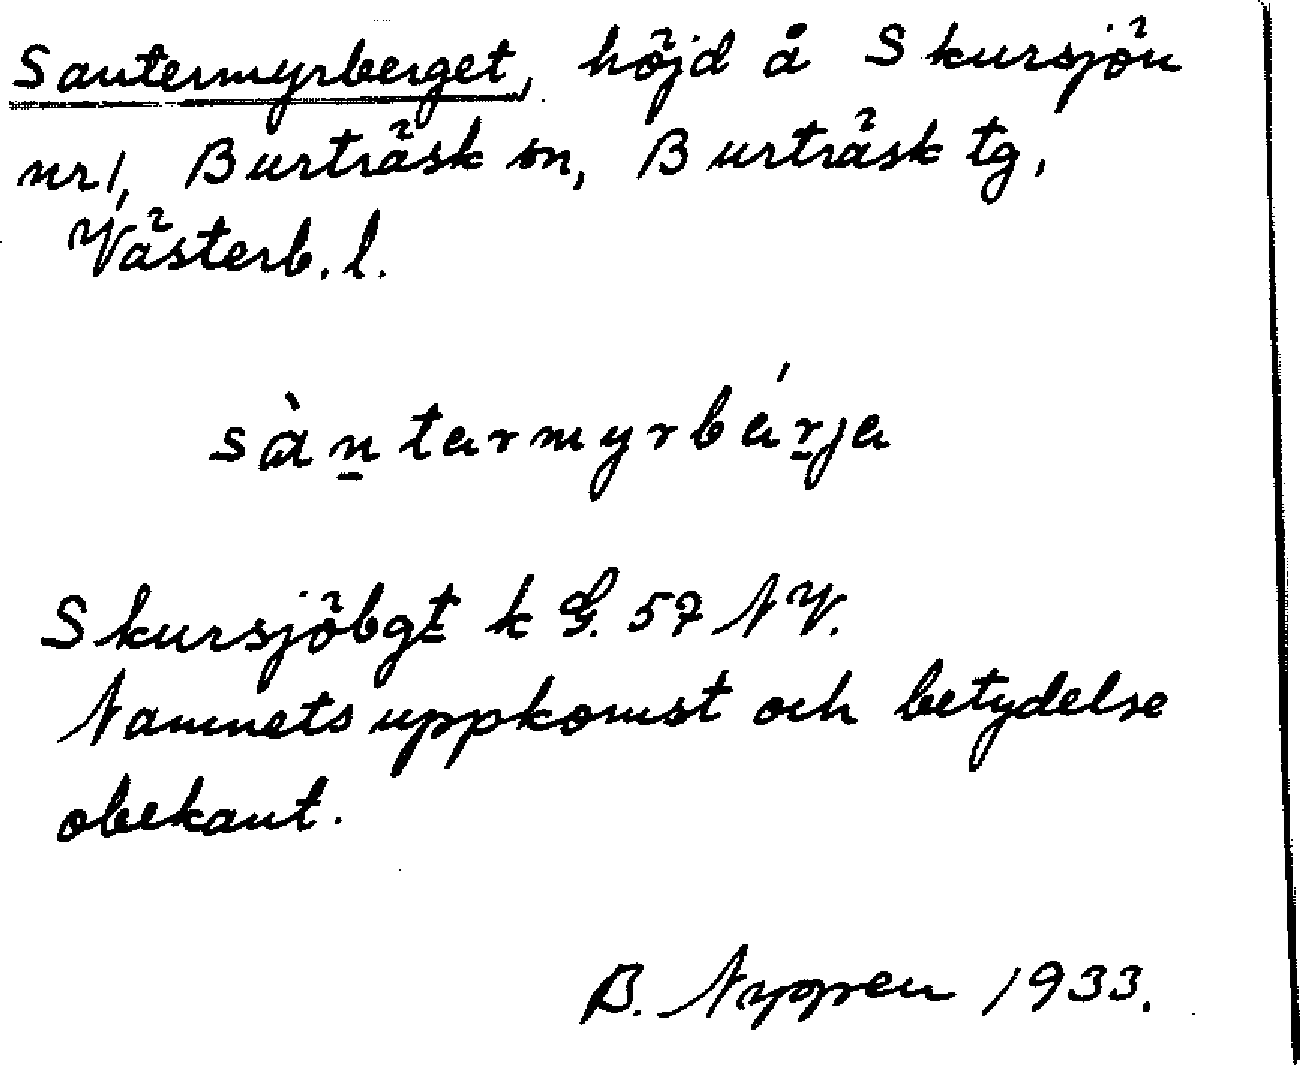 Santermyrberget, höjd å Skursjön
nr 1, Burträsk sn, Burträsk tg,
Västerb. l.
sàntarmyrbárja
Skursjöbgt k G. 57 NV.
Namnets uppkomst och betydelse
obekant.
B. Nygren 1933.